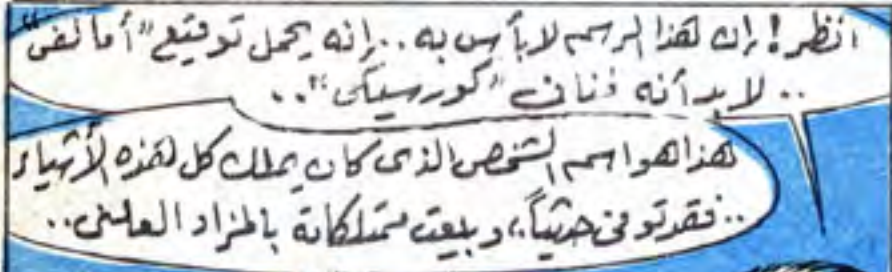 انظر! إن هذا الرسم لا بأس به .. إنه يحمل توقيع "أمالفى"
.. لا بد أنه فنان "كورسيكى" ..
هذا هو اسم الشخص الذى كان يملك كل هذه الأشياء
.. فقد توفى حديثاً، وبيعت ممتلكاته بالمزاد العلنى ..